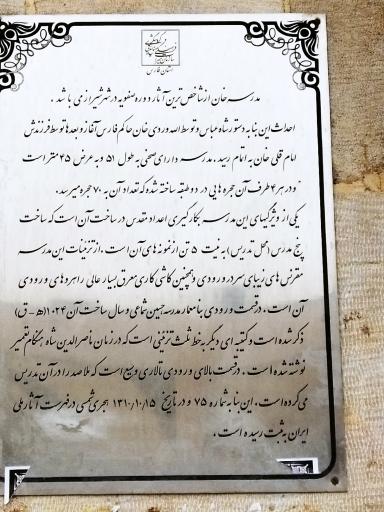 استان فارس
مدرسه خان از شاخص ترین آثار دوره صفویه در شهر شیراز می باشد .
احداث این بنا به دستور شاه عباس و توسط الله وردی خان حاکم فارس آغاز و بعدها توسط فرزندش
امام قلی خان به اتمام رسید . مدرسه دارای صحنی به طول ۵۱ و به عرض ۴۵ متر است
و در هر ۴ طرف آن حجره هایی در دو طبقه ساخته شده که تعداد آن به ۷۰ حجره میرسد.
یکی از ویژگیهای این مدرسه بکارگیری اعداد مقدس در ساخت آن است که ساخت
پنج مدرس (محل تدریس) به نیت ۵ تن از نمونه های آن است . از تزئینات این مدرسه
مقرنس های زیبای سردر ورودی و همچنین کاشی کاری معرق بسیار عالی راهروهای ورودی
آن است . در قسمت ورودی بنا معمار مدرسه حسین شماعی و سال ساخت آن ۱۰۲۴ (ه - ق)
ذکر شده است و کتیبه ای دیگر به خط ثلث تزئینی است که در زمان ناصرالدین شاه هنگام تعمیر
نوشته شده است . در قسمت بالای ورودی تالاری وسیع است که ملاصدرا در آن تدریس
می کرده است . این بنا به شماره ۷۵ و در تاریخ ۱۳۱۰/۱۰/۱۵ هجری شمسی در فهرست آثار ملی
ایران به ثبت رسیده است .